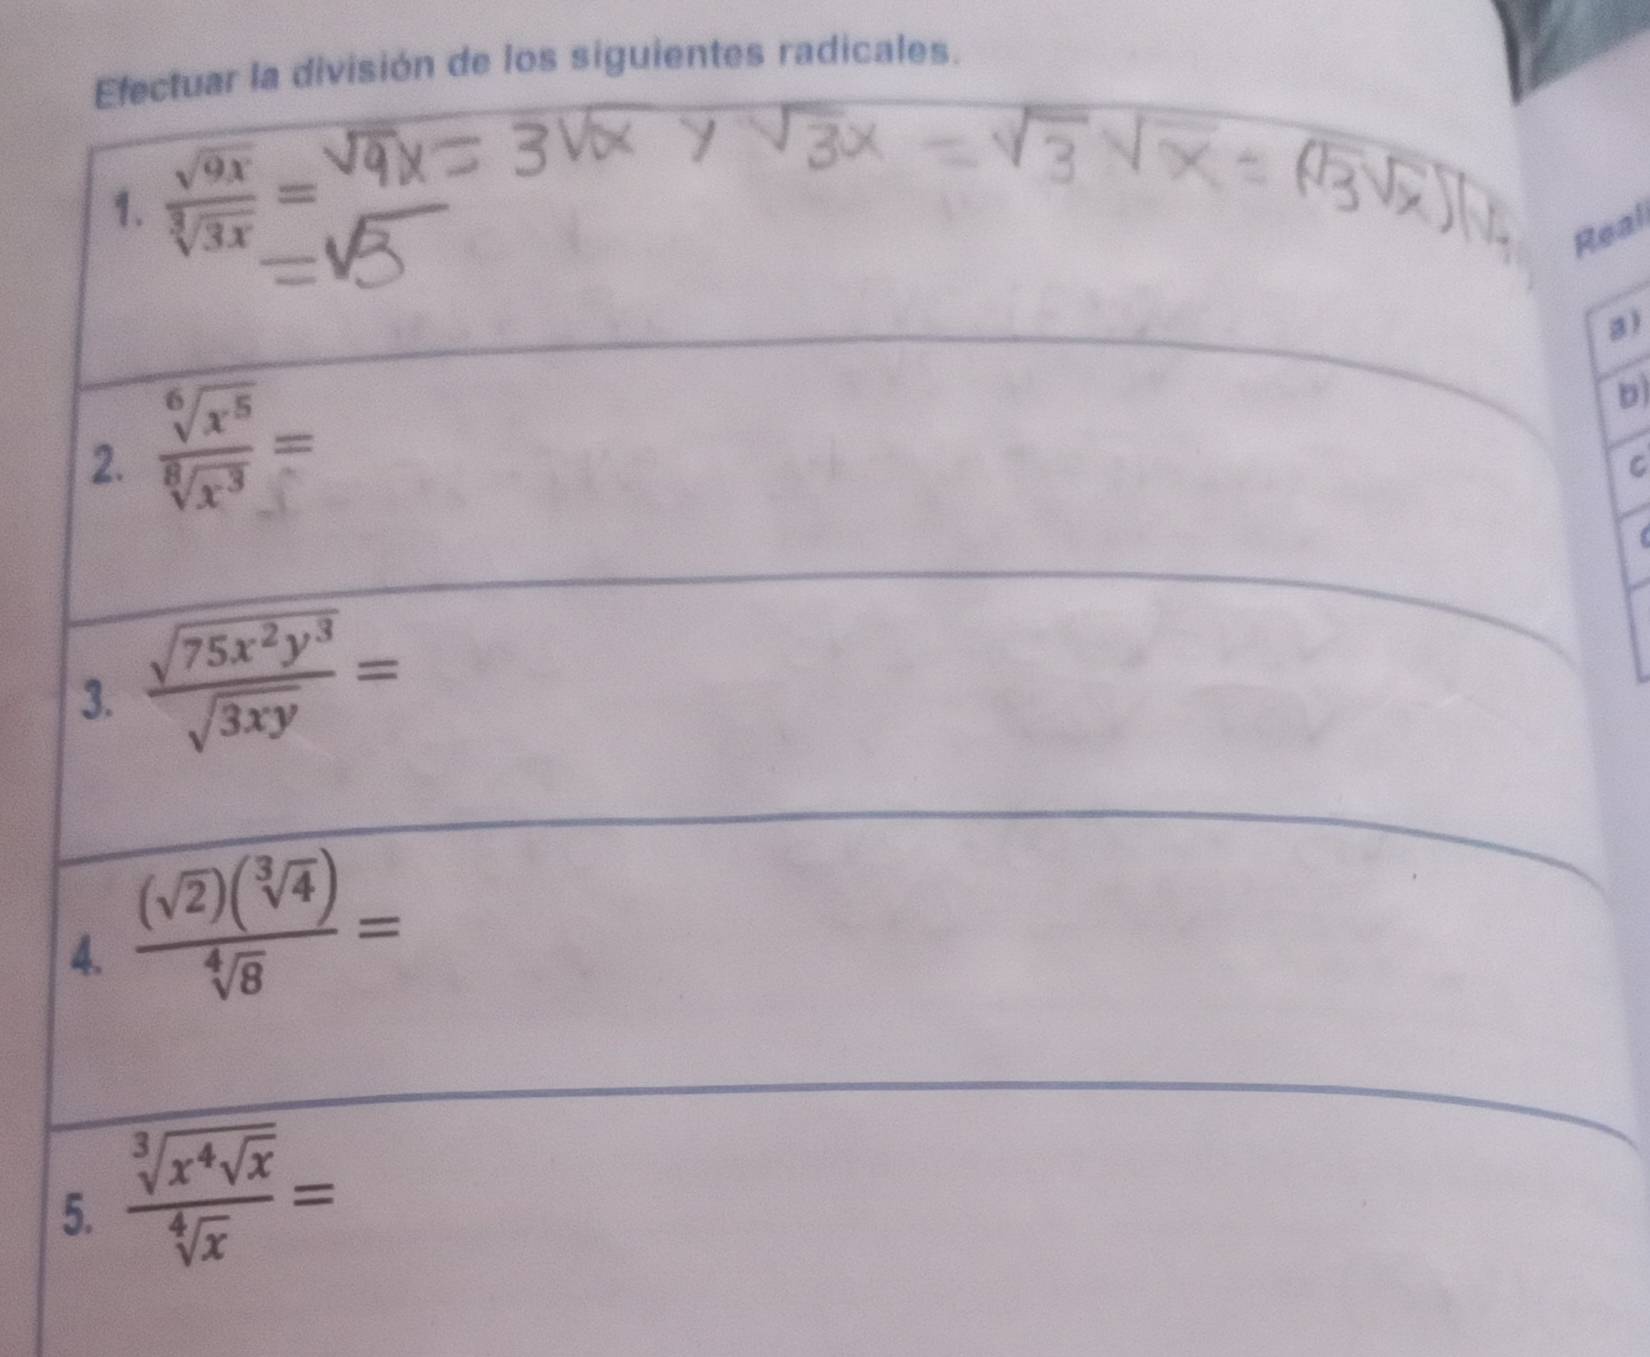 Efectuar la división de los siguientes radicales.
1. √(9x) / ∛(3x) = √9x = 3√x y √3x = √3√x = (√3√x)(√
= √3
2. ⁶√(x⁵) / ⁸√(x³) =
3. √(75x²y³) / √(3xy) =
4. (√2)(∛4) / ⁴√8 =
5. ∛(x⁴√x) / ⁴√x =
Reali
a)
b)
c